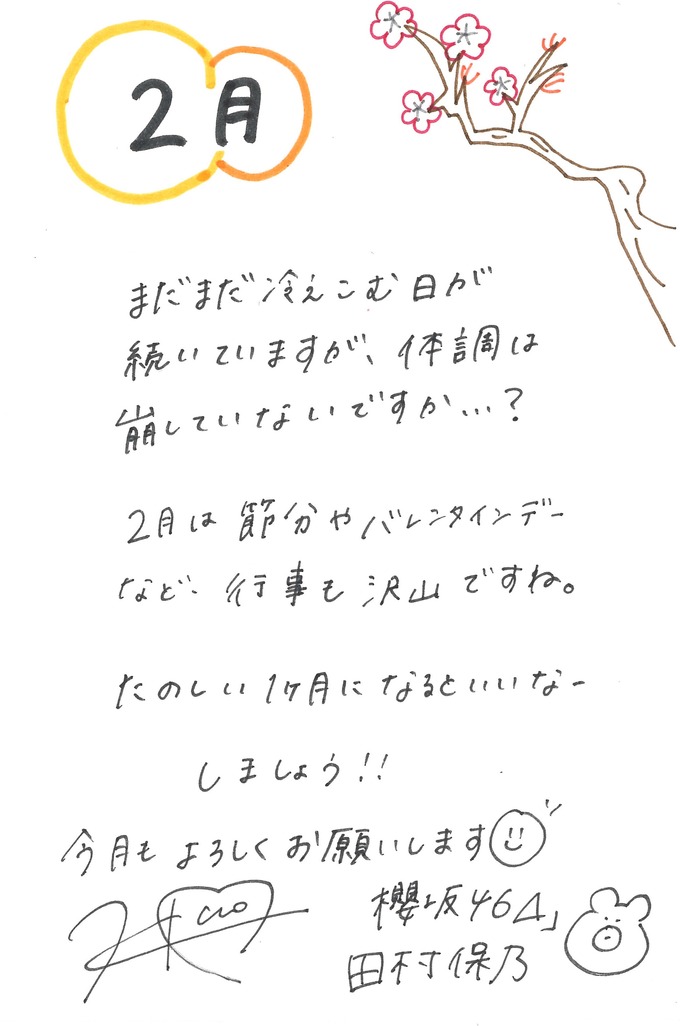 2月
まだまだ冷えこむ日が
続いていますが、体調は
崩していないですか…?
2月は節分やバレンタインデー
など、行事も沢山ですね。
たのしい1ヶ月になるといいなー
しましょう!!
今月もよろしくお願いします
櫻坂46
田村保乃